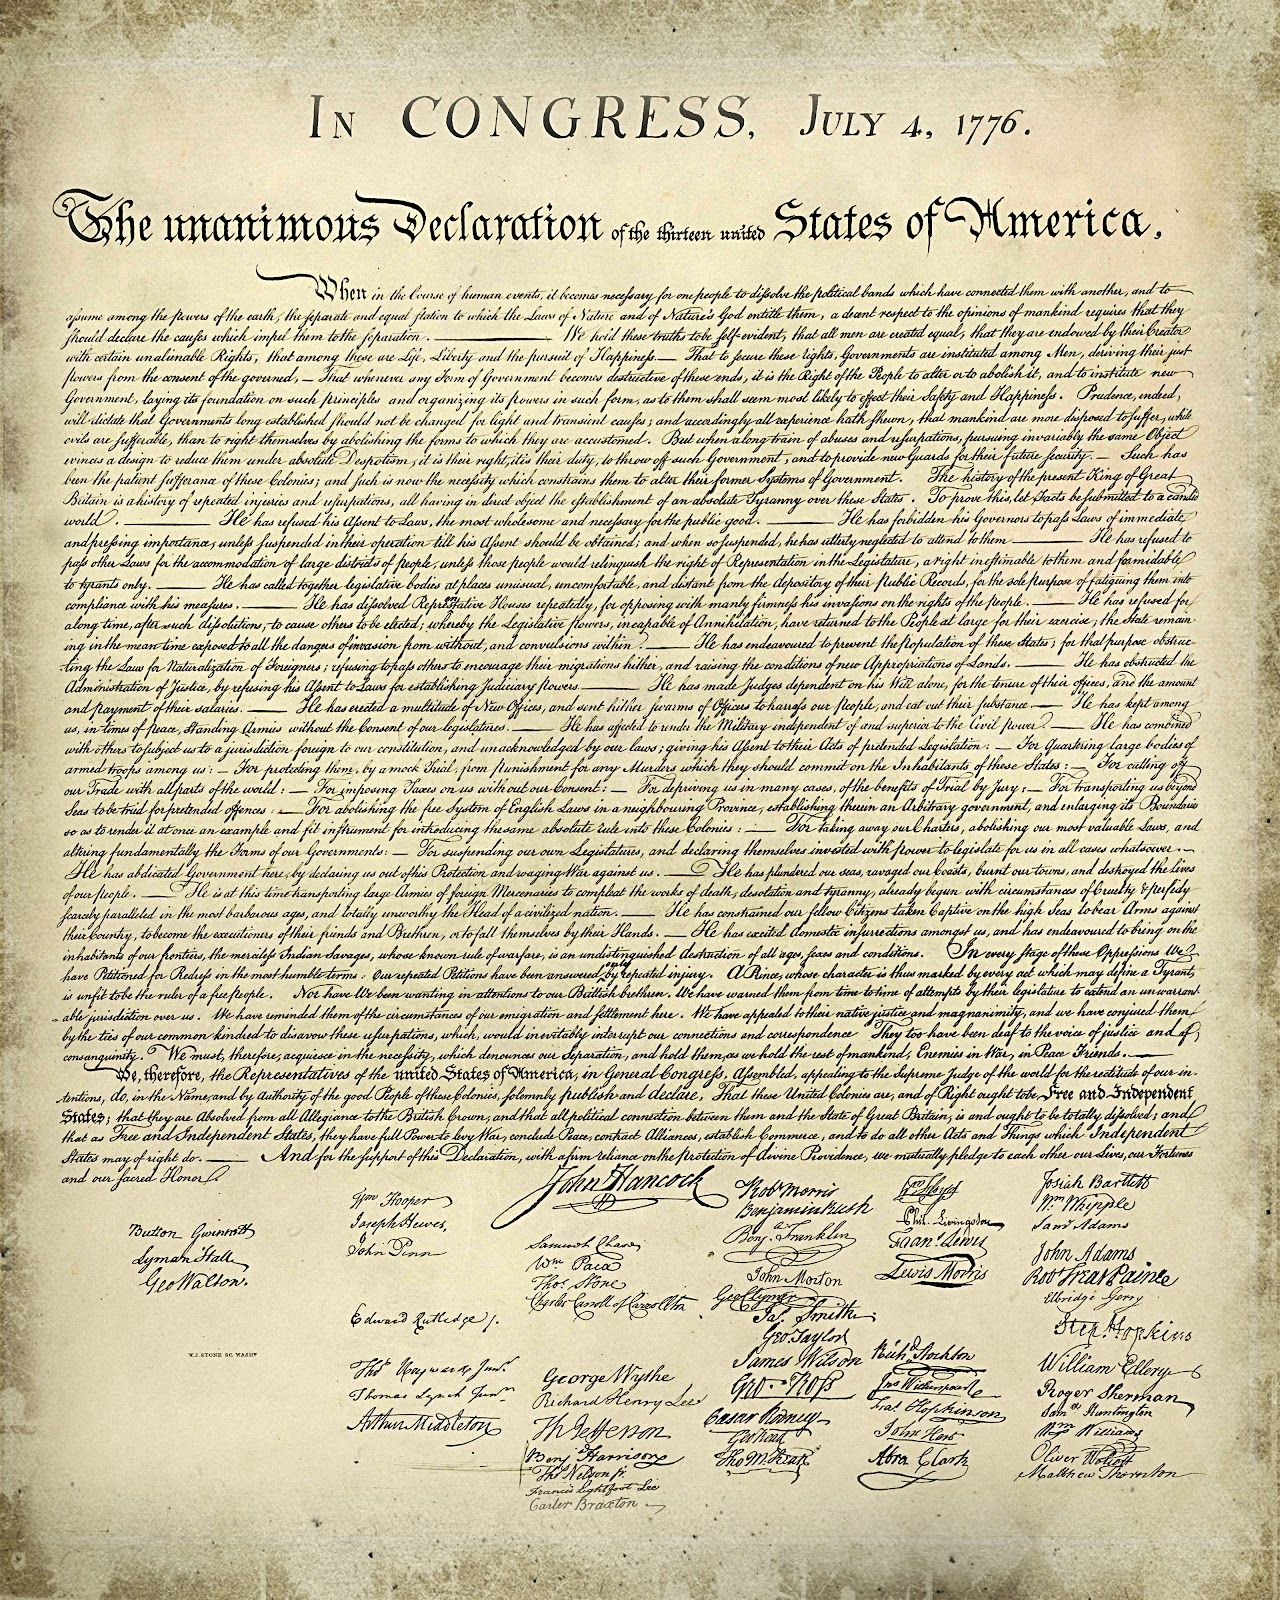 IN CONGRESS, JULY 4, 1776.
The unanimous Declaration of the thirteen united States of America,
When in the Course of human events, it becomes necessary for one people to dissolve the political bands which have connected them with another, and to
assume among the powers of the earth, the separate and equal station to which the Laws of Nature and of Nature's God entitle them, a decent respect to the opinions of mankind requires that they
should declare the causes which impel them to the separation. — We hold these truths to be self-evident, that all men are created equal, that they are endowed by their Creator
with certain unalienable Rights, that among these are Life, Liberty and the pursuit of Happiness. — That to secure these rights, Governments are instituted among Men, deriving their just
powers from the consent of the governed, — That whenever any Form of Government becomes destructive of these ends, it is the Right of the People to alter or to abolish it, and to institute new
Government, laying its foundation on such principles and organizing its powers in such form, as to them shall seem most likely to effect their Safety and Happiness. Prudence, indeed,
will dictate that Governments long established should not be changed for light and transient causes; and accordingly all experience hath shewn, that mankind are more disposed to suffer, while
evils are sufferable, than to right themselves by abolishing the forms to which they are accustomed. But when a long train of abuses and usurpations, pursuing invariably the same Object
evinces a design to reduce them under absolute Despotism, it is their right, it is their duty, to throw off such Government, and to provide new Guards for their future security. — Such has
been the patient sufferance of these Colonies; and such is now the necessity which constrains them to alter their former Systems of Government. The history of the present King of Great
Britain is a history of repeated injuries and usurpations, all having in direct object the establishment of an absolute Tyranny over these States. To prove this, let Facts be submitted to a candid
world. — He has refused his Assent to Laws, the most wholesome and necessary for the public good. — He has forbidden his Governors to pass Laws of immediate
and pressing importance, unless suspended in their operation till his Assent should be obtained; and when so suspended, he has utterly neglected to attend to them. — He has refused to
pass other Laws for the accommodation of large districts of people, unless those people would relinquish the right of Representation in the Legislature, a right inestimable to them and formidable
to tyrants only. — He has called together legislative bodies at places unusual, uncomfortable, and distant from the depository of their public Records, for the sole purpose of fatiguing them into
compliance with his measures. — He has dissolved Representative Houses repeatedly, for opposing with manly firmness his invasions on the rights of the people. — He has refused for
a long time, after such dissolutions, to cause others to be elected; whereby the Legislative powers, incapable of Annihilation, have returned to the People at large for their exercise; the State remain
ing in the mean time exposed to all the dangers of invasion from without, and convulsions within. — He has endeavoured to prevent the population of these States; for that purpose obstruc-
ting the Laws for Naturalization of Foreigners; refusing to pass others to encourage their migrations hither, and raising the conditions of new Appropriations of Lands. — He has obstructed the
Administration of Justice, by refusing his Assent to Laws for establishing Judiciary powers. — He has made Judges dependent on his Will alone, for the tenure of their offices, and the amount
and payment of their salaries. — He has erected a multitude of New Offices, and sent hither swarms of Officers to harrass our people, and eat out their substance. — He has kept among
us, in times of peace, Standing Armies without the Consent of our legislatures. — He has affected to render the Military independent of and superior to the Civil power. — He has combined
with others to subject us to a jurisdiction foreign to our constitution, and unacknowledged by our laws; giving his Assent to their Acts of pretended Legislation: — For Quartering large bodies of
armed troops among us: — For protecting them, by a mock Trial, from punishment for any Murders which they should commit on the Inhabitants of these States: — For cutting off
our Trade with all parts of the world: — For imposing Taxes on us without our Consent: — For depriving us in many cases, of the benefits of Trial by Jury: — For transporting us beyond
Seas to be tried for pretended offences: — For abolishing the free System of English Laws in a neighbouring Province, establishing therein an Arbitrary government, and enlarging its Boundaries
so as to render it at once an example and fit instrument for introducing the same absolute rule into these Colonies: — For taking away our Charters, abolishing our most valuable Laws, and
altering fundamentally the Forms of our Governments: — For suspending our own Legislatures, and declaring themselves invested with power to legislate for us in all cases whatsoever. —
He has abdicated Government here, by declaring us out of his Protection and waging War against us. — He has plundered our seas, ravaged our Coasts, burnt our towns, and destroyed the lives
of our people. — He is at this time transporting large Armies of foreign Mercenaries to compleat the works of death, desolation and tyranny, already begun with circumstances of Cruelty & perfidy
scarcely paralleled in the most barbarous ages, and totally unworthy the Head of a civilized nation. — He has constrained our fellow Citizens taken Captive on the high Seas to bear Arms against
their Country, to become the executioners of their friends and Brethren, or to fall themselves by their Hands. — He has excited domestic insurrections amongst us, and has endeavoured to bring on the
inhabitants of our frontiers, the merciless Indian Savages, whose known rule of warfare, is an undistinguished destruction of all ages, sexes and conditions. In every stage of these Oppressions We
have Petitioned for Redress in the most humble terms: Our repeated Petitions have been answered only by repeated injury. A Prince, whose character is thus marked by every act which may define a Tyrant,
is unfit to be the ruler of a free people. Nor have We been wanting in attentions to our Brittish brethren. We have warned them from time to time of attempts by their legislature to extend an unwarrant-
able jurisdiction over us. We have reminded them of the circumstances of our emigration and settlement here. We have appealed to their native justice and magnanimity, and we have conjured them
by the ties of our common kindred to disavow these usurpations, which, would inevitably interrupt our connections and correspondence. They too have been deaf to the voice of justice and of
consanguinity. We must, therefore, acquiesce in the necessity, which denounces our Separation, and hold them, as we hold the rest of mankind, Enemies in War, in Peace Friends. —
We, therefore, the Representatives of the united States of America, in General Congress, Assembled, appealing to the Supreme Judge of the world for the rectitude of our in-
tentions, do, in the Name, and by Authority of the good People of these Colonies, solemnly publish and declare, That these United Colonies are, and of Right ought to be Free and Independent
States; that they are Absolved from all Allegiance to the British Crown, and that all political connection between them and the State of Great Britain, is and ought to be totally dissolved; and
that as Free and Independent States, they have full Power to levy War, conclude Peace, contract Alliances, establish Commerce, and to do all other Acts and Things which Independent
States may of right do. — And for the support of this Declaration, with a firm reliance on the protection of divine Providence, we mutually pledge to each other our Lives, our Fortunes
and our sacred Honor.
Button Gwinnett
Lyman Hall
Geo Walton.
W.J. STONE SC. WASHN
Wm Hooper
Joseph Hewes,
John Penn
Edward Rutledge /.
Thos Heyward Junr.
Thomas Lynch Junr.
Arthur Middleton
John Hancock
Samuel Chase
Wm Paca
Thos. Stone
Charles Carroll of Carrollton
George Wythe
Richard Henry Lee
Th Jefferson
Benj Harrison
Thos Nelson jr.
Francis Lightfoot Lee
Carter Braxton
Robt Morris
Benjamin Rush
Benj. Franklin
John Morton
Geo Clymer
Jas. Smith
Geo. Taylor
James Wilson
Geo. Ross
Caesar Rodney
Geo Read
Tho M:Kean
Wm Floyd
Phil. Livingston
Frans. Lewis
Lewis Morris
Richd. Stockton
Jno Witherspoon
Fras. Hopkinson
John Hart
Abra Clark
Josiah Bartlett
Wm: Whipple
Saml Adams
John Adams
Robt Treat Paine
Elbridge Gerry
Step. Hopkins
William Ellery
Roger Sherman
Samel Huntington
Wm. Williams
Oliver Wolcott
Matthew Thornton